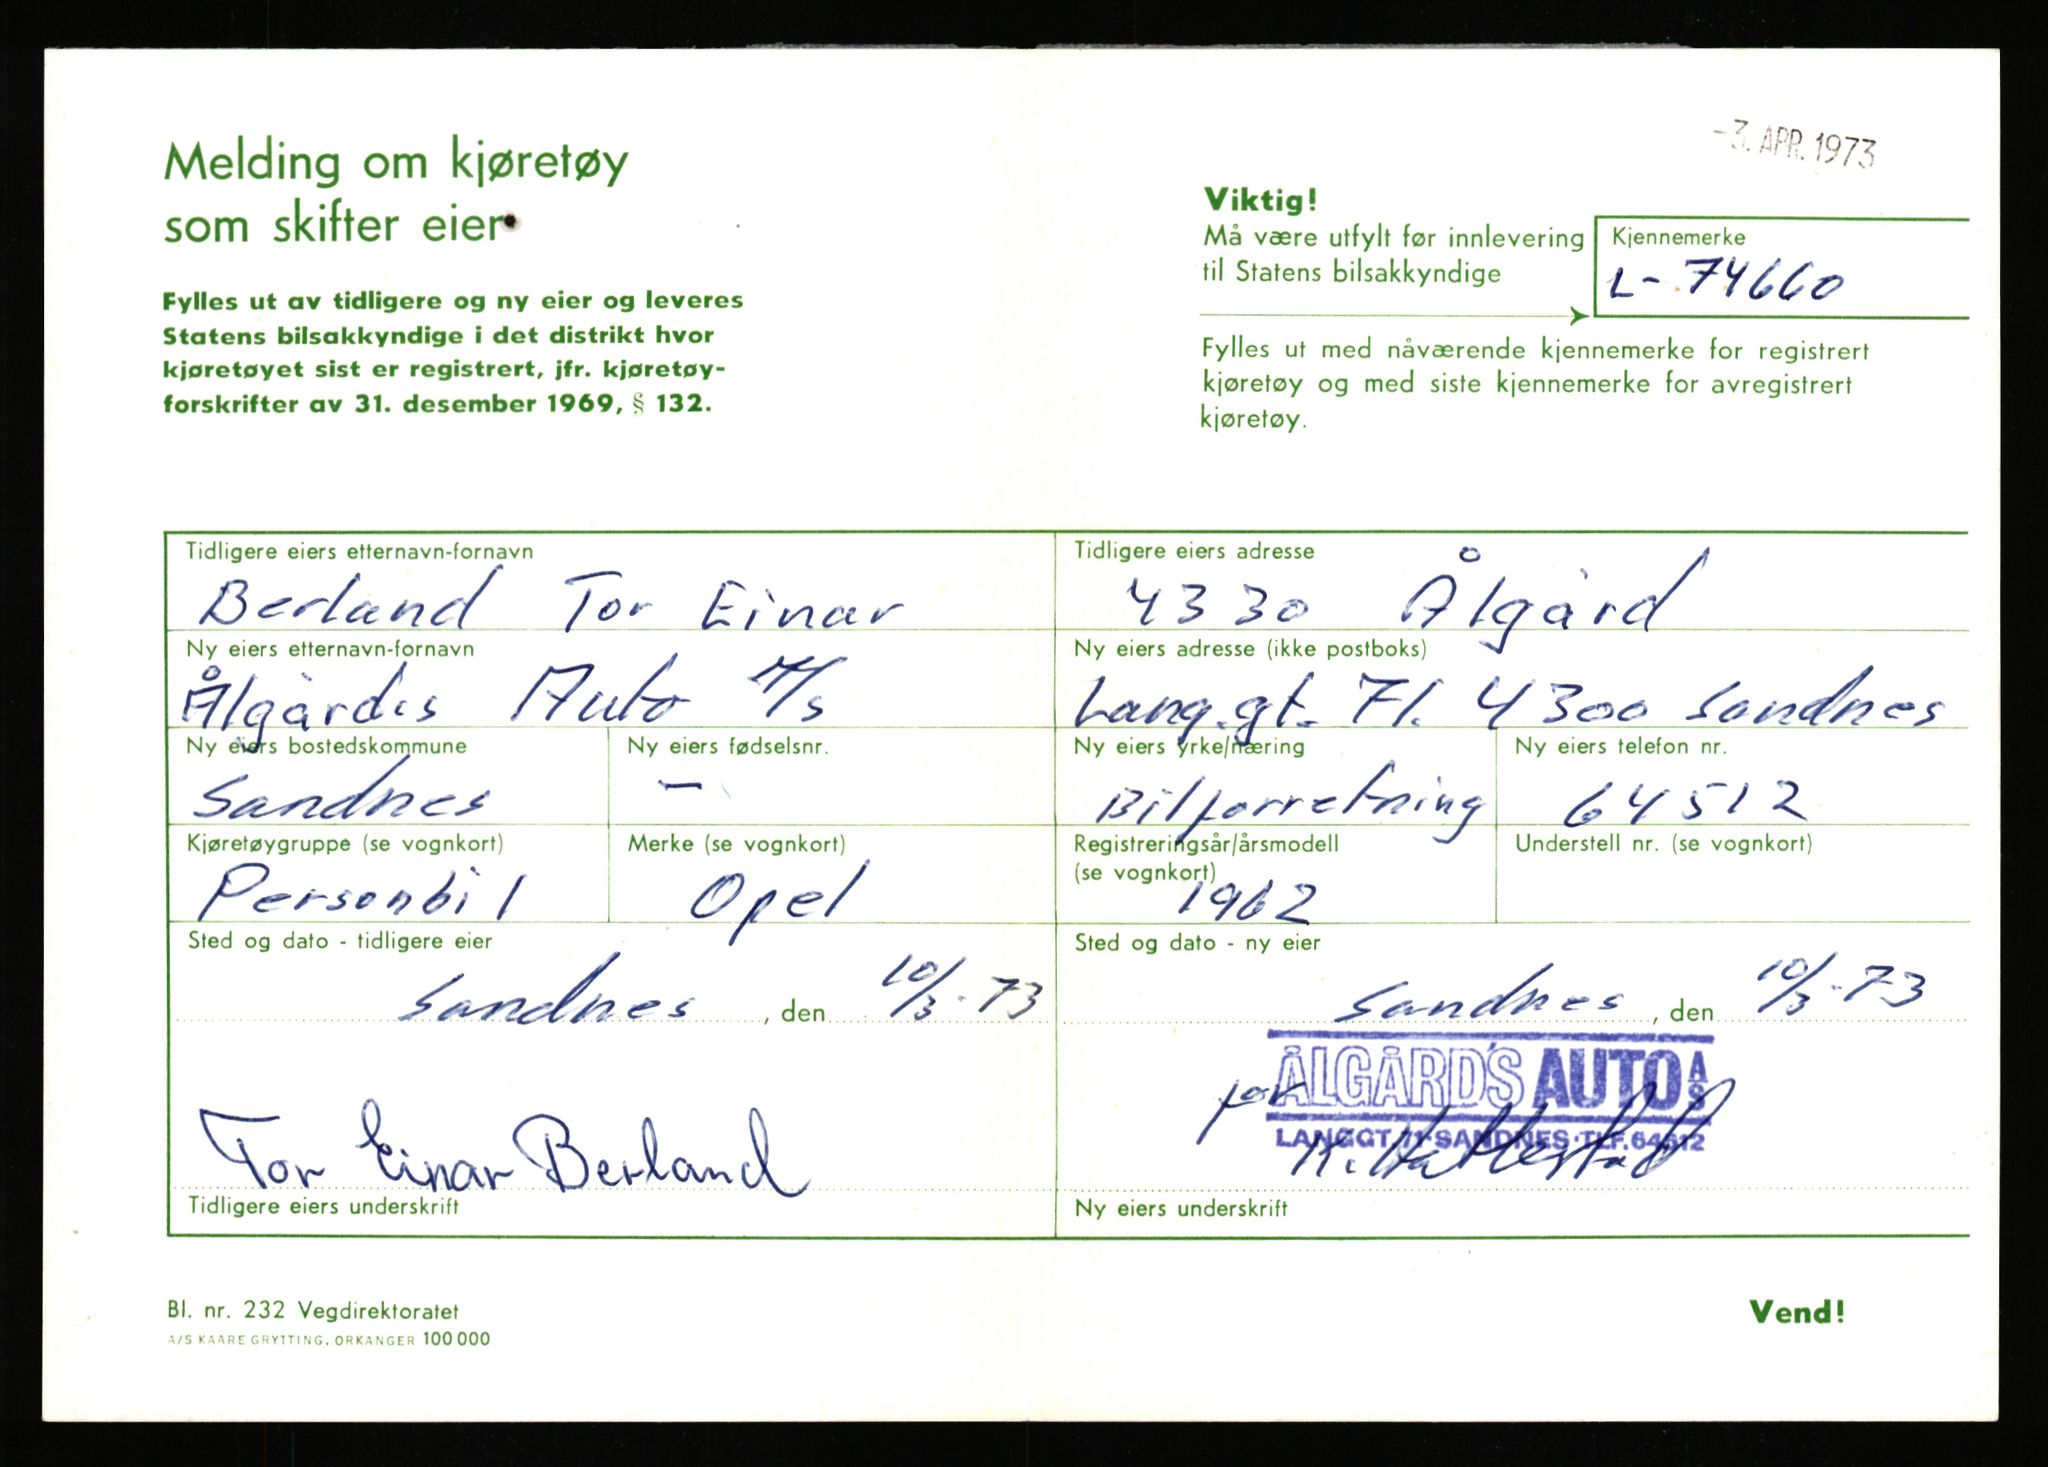 -3. APR. 1973
Melding om kjøretøy
som skifter eier
Fylles ut av tidligere og ny eier og leveres
Statens bilsakkyndige i det distrikt hvor
kjøretøyet sist er registrert, jfr. kjøretøy-
forskrifter av 31. desember 1969, § 132.
Viktig!
Må være utfylt før innlevering
til Statens bilsakkyndige
Kjennemerke
L- 74660
Fylles ut med nåværende kjennemerke for registrert
kjøretøy og med siste kjennemerke for avregistrert
kjøretøy.
Tidligere eiers etternavn-fornavn
Berland Tor Einar
Tidligere eiers adresse
4330 Ålgård
Ny eiers etternavn-fornavn
Ålgård,s Auto A/s
Ny eiers adresse (ikke postboks)
Lang.gt. 71. 4300 Sandnes
Ny eiers bostedskommune
Sandnes
Ny eiers fødselsnr.
-
Ny eiers yrke/næring
Bilforretning
Ny eiers telefon nr.
64512
Kjøretøygruppe (se vognkort)
Personbil
Merke (se vognkort)
Opel
Registreringsår/årsmodell
(se vognkort)
1962
Understell nr. (se vognkort)
Sted og dato - tidligere eier
Sandnes, den 10/3-73
Sted og dato - ny eier
Sandnes, den 10/3-73
Tor Einar Berland
Tidligere eiers underskrift
for
ÅLGÅRD'S AUTO AS
LANGGT. 71·SANDNES·TLF. 64512
K. Hattestad
Ny eiers underskrift
Bl. nr. 232 Vegdirektoratet
A/S KAARE GRYTTING, ORKANGER 100 000
Vend!